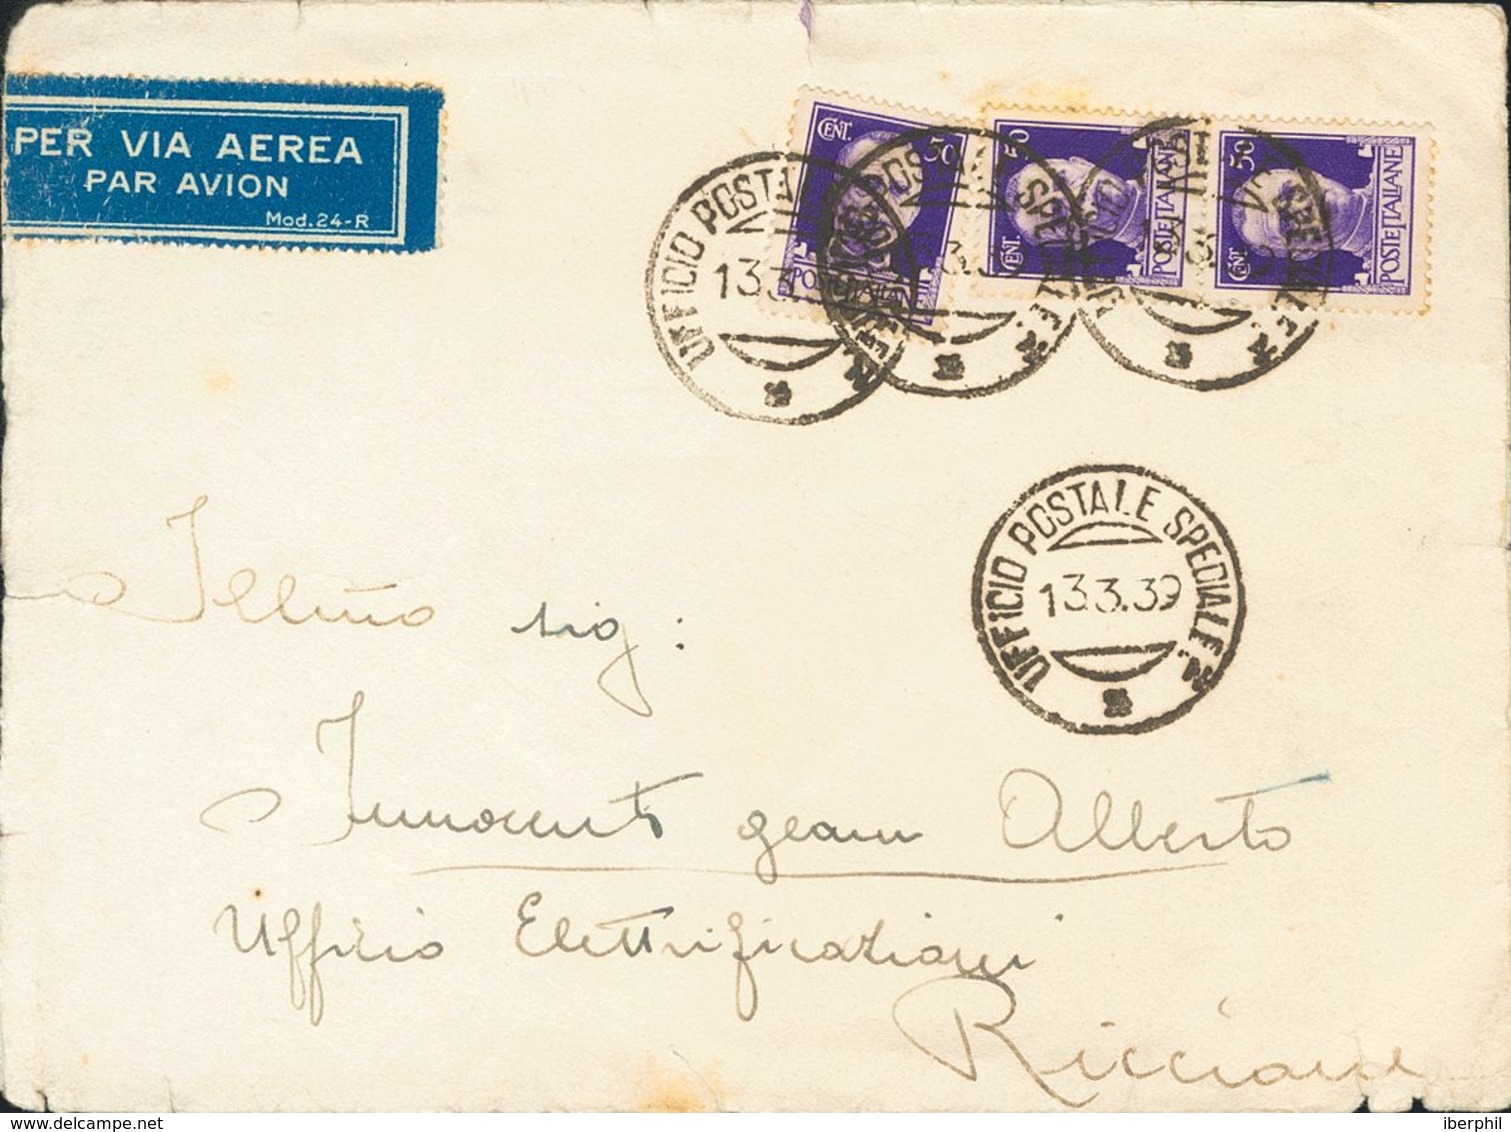 PER VIA AEREA
PAR AVION
Mod.24-R
CENT. 50
POSTE ITALIANE
CENT. 50
POSTE ITALIANE
CENT. 50
POSTE ITALIANE
UFFICIO POSTALE SPECIALE N.
13.3.39
Ill.mo sig:
Innocenti gean Alberto
Ufficio Elettrificazioni
Riccione
iberphil